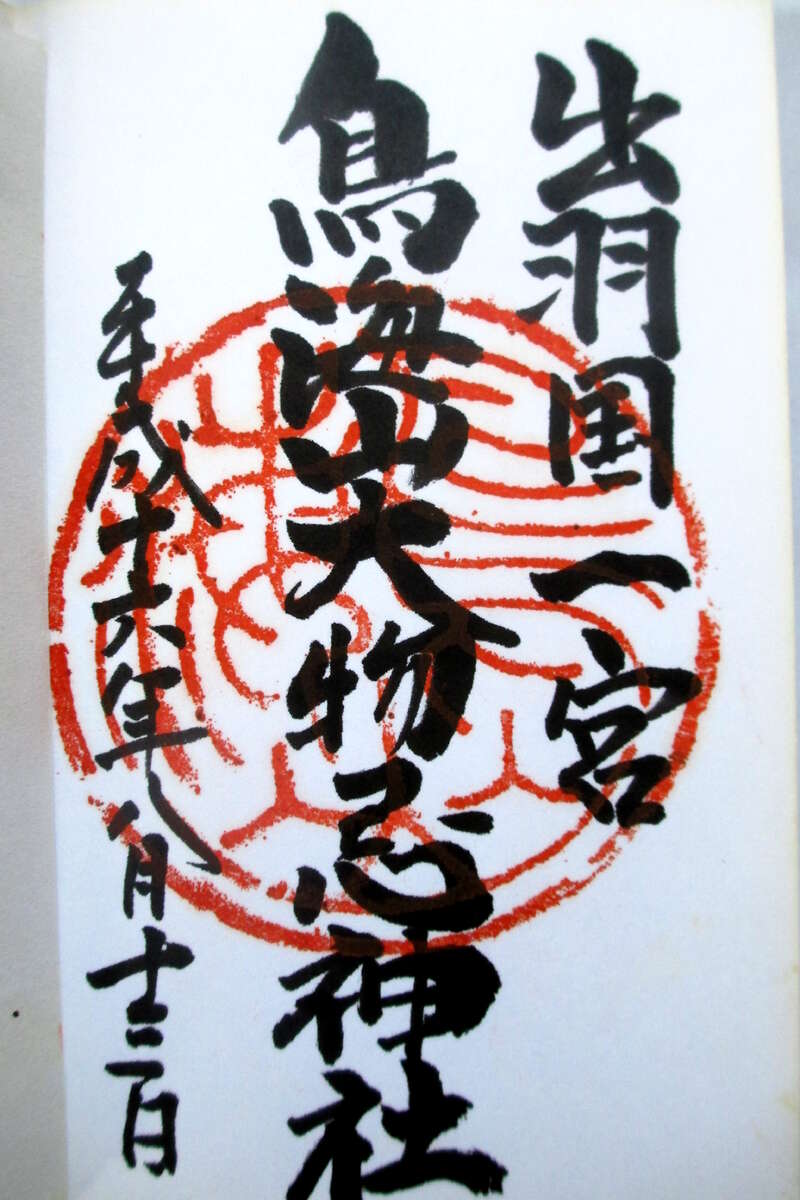 出羽国一宮
鳥海山大物忌神社
平成十六年八月十三日